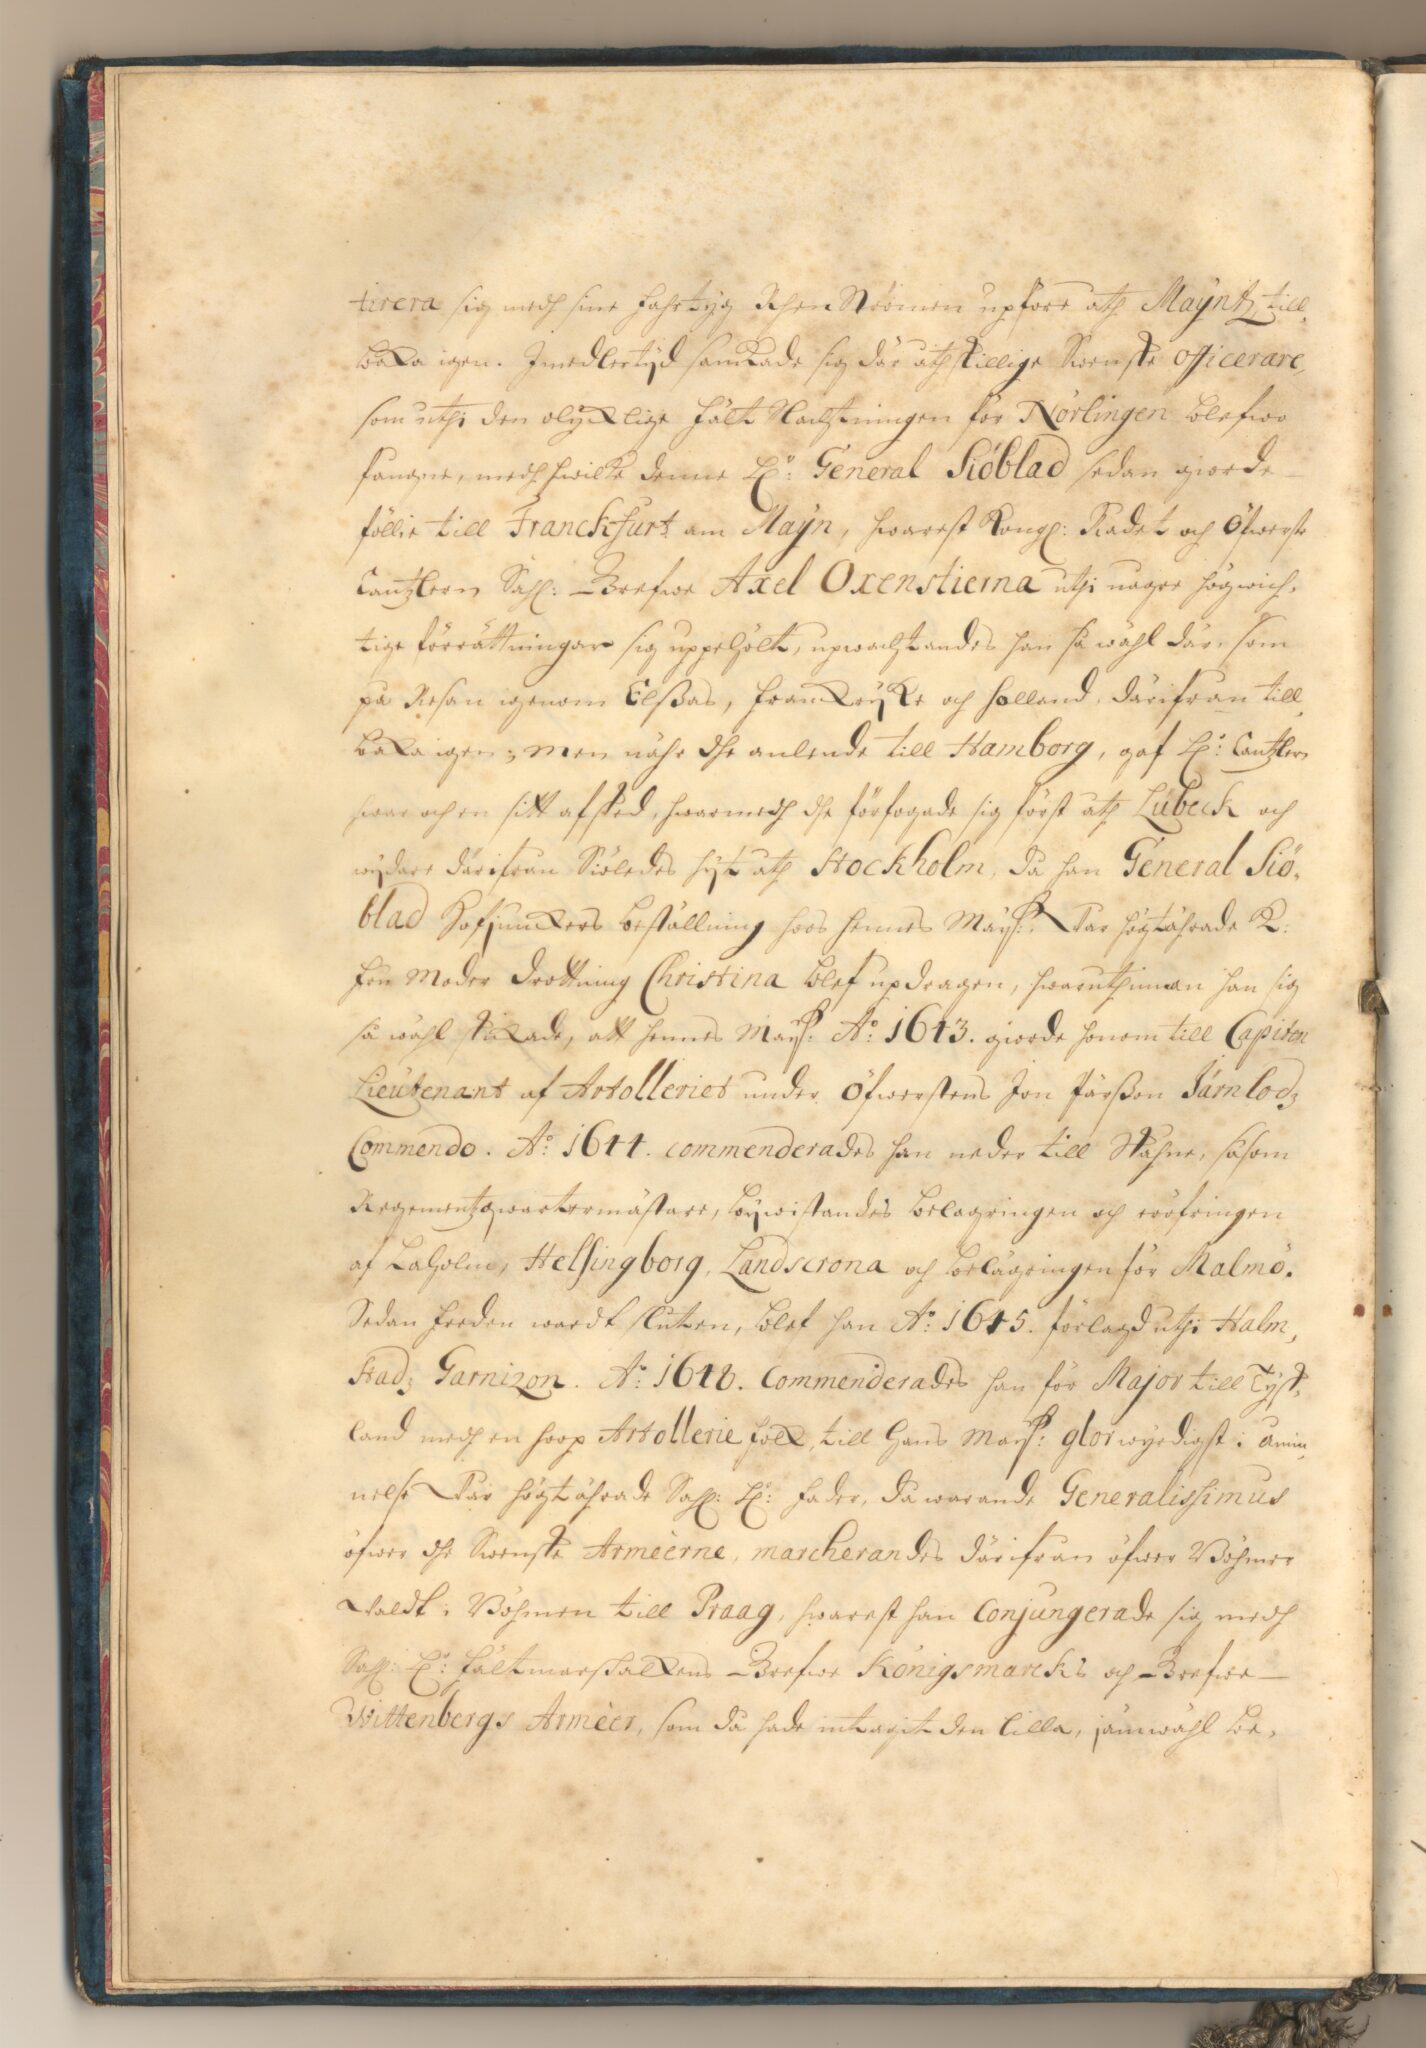 tirera sig medh sine fahrtyg Rhen Strömen upföre ath Mayntz till,
baka igen. Imedlertijd samkade sig där åthskillige Swenske officerare,
som uthi den olyklige fält Slachtningen för Nörlingen blefwo
fångne, medh hwilke denne Hr: General Siöblad sedan giorde
föllie till Franckfurt am Mayn, hwarest Kongl: Rådet och Öfwerste
Cantzlern Sahl: Grefwe Axel Oxenstierna uthi någre högwich,
tige förrättningar sig uppehölt, upwachtandes han så wähl där, som
på Resan igenom Elßas, Franckrijke och Holland, därifrån till,
baka igen; men nähr dhe anlende till Hamborg, gaf Hr: Cantzlern
hwar och en sitt afsked, hwarmedh dhe förfogade sig först ath Lübeck och
wydare därifrån Siöledes hijt ath Stockholm, då han General Siö,
blad Hofjunckers beställning hoos Hennes Mayst: Wår högtährade K:
Fru Moder Drottning Christina blef updragen, hwaruthinnan han sig
så wähl skickade, att Hennes Mayst: Ao: 1643. giorde honom till Capiten
Lieutenant af Artolleriet under Öfwerstens Jon Pärßon Järnlodz
Commendo. Ao: 1644. commenderades han neder till Skåhne, såsom
Regementzqwartermästare, bijwistandes belagringen och eröfringen
af Laholm, Helsingborg, Landscrona och belägringen för Malmö.
Sedan Freden wardt sluten, blef han Ao: 1645. förlagd uthi Halm,
stadz Garnizon. Ao: 1648. Commenderades han för Major till Tyst,
land medh en hoop Artollerie folk, till Hans Mayst: glorwyrdigst i åmin,
nelse Wår högtährade Sahl: Hr: Fader, då warande Generalissimus
öfwer dhe Swenske Armèerne, marcherandes därifrån öfwer Böhmer
Waldt i Böhmen till Praag, hwarest han Conjungerade sig medh
Sahl: Hr: Fältmarskalkens Grefwe Königsmarcks och Grefwe
Wittenbergs Armèer, som då hade intagit den lilla, jämwähl be,